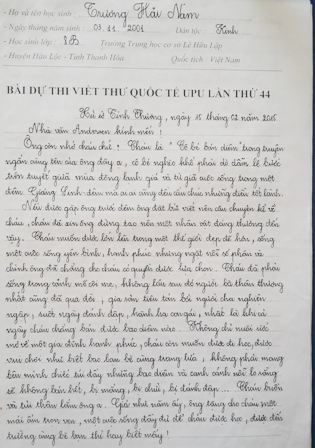 Họ và tên học sinh : Trương Hải Nam
Ngày tháng năm sinh : 03.11.2001 Dân tộc : Kinh
Học sinh lớp : 8B Trường Trung học cơ sở Lê Hữu Lập
Huyện Hậu Lộc - Tỉnh Thanh Hóa Quốc tịch : Việt Nam
BÀI DỰ THI VIẾT THƯ QUỐC TẾ UPU LẦN THỨ 44
Xứ sở Tình Thương, ngày 15 tháng 02 năm 2015
Nhà văn Andersen kính mến !
Ông còn nhớ cháu chứ ? Cháu là " Cô bé bán diêm" trong truyện
ngắn cùng tên của ông đây ạ, cô bé nghèo khổ phải dò dẫm lê bước
trên tuyết giữa mùa đông lạnh giá và từ giã cuộc sống trong một
đêm Giáng Sinh - đêm mà ai ai cũng đều cầu chúc những điều tốt lành.
Nếu được gặp ông trước đêm ông đặt bút viết nên câu chuyện kể về
cháu, cháu sẽ xin ông đừng tạo nên một nhân vật đáng thương đến
vậy. Cháu muốn được lớn lên trong một thế giới đẹp đẽ hơn, sống
một cuộc sống yên bình, hạnh phúc nhưng ngặt nỗi số phận và
chính ông đã chẳng cho cháu có quyền được lựa chọn. Cháu đã phải
sống trong cảnh mồ côi mẹ, không lâu sau đó người bà thân thương
nhất cũng đã qua đời, gia sản tiêu tán bởi người cha nghiện
ngập, suốt ngày đánh đập, hành hạ con gái, nhất là khi cả
ngày cháu chẳng bán được bao diêm nào... Không chỉ nuôi ước
mơ về một gia đình hạnh phúc, cháu còn muốn được đi học, được
vui chơi như biết bao bạn bè cùng trang lứa, không phải mang
bên mình chiếc túi đầy những bao diêm và canh cánh nỗi lo rằng
sẽ không bán hết, bị mắng, bị chửi, bị đánh đập... Cháu buồn
và tủi thân lắm ông ạ. Giá như năm ấy, ông tặng cho cháu một
mái ấm trọn vẹn, một cuộc sống đầy đủ để cháu được học, được đến
trường cùng bè bạn thì hay biết mấy !